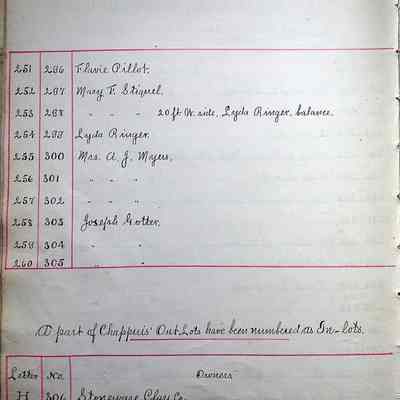 251 296 Flavie Pillot.
252 297 Mary F. Stiquel.
253 298 " " " 20 ft W. side, Lyda Ringer, balance.
254 299 Lyda Ringer.
255 300 Mrs. A. J. Myers.
256 301 " " "
257 302 " " "
258 303 Joseph Gotter.
259 304 " "
260 305 " "
A part of Chappuis' Out-Lots have been numbered as In-lots.
Letter No. Owners
H 306 Stoneware Clay Co.